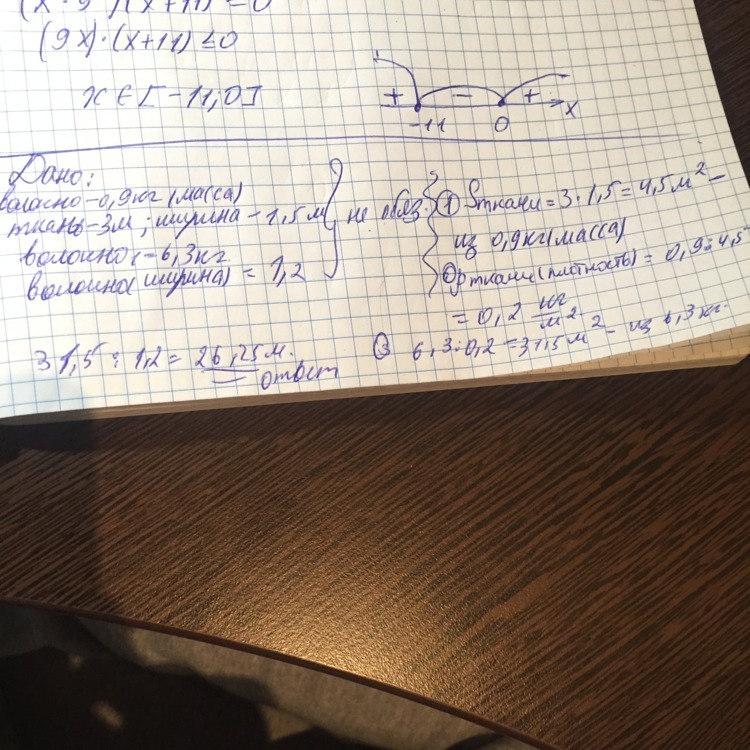 (x·9)(x+11) = 0
(9x)·(x+11) ≤ 0
x ∈ [-11, 0]
+ - +
-11 0 x
Дано:
волокно - 0,9 кг (масса)
ткань - 3м ; ширина - 1,5 м
волокно - 6,3 кг
волокно (ширина) = 1,2
не обяз.
① Sткани = 3 · 1,5 = 4,5 м² -
из 0,9 кг (масса)
② p ткани (плотность) = 0,9 : 4,5
= 0,2 кг/м²
③ 6,3 : 0,2 = 31,5 м² - из 6,3 кг.
31,5 : 1,2 = 26,25 м.
ответ